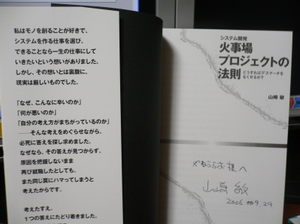 私はモノを創ることが好きで、
システムを作る仕事を選び、
できることなら一生の仕事にして
いきたいという想いがありました。
しかし、その想いとは裏腹に、
現実は厳しいものでした。
「なぜ、こんなに辛いのか」
「何が悪いのか」
「自分の考え方がまちがっているのか」
――そんな考えをめぐらせながら、
必死に答えを探し求めました。
なぜなら、その答えが見つからず、
原因を把握しないまま
再び就職したとしても、
また同じ穴にハマってしまうと
考えたからです。
考えたすえ、
1つの答えにたどり着きました。
システム開発
火事場
プロジェクトの
法則
どうすればデスマーチを
なくせるか？
山崎 敏
様へ
山崎 敏
2006.9.29